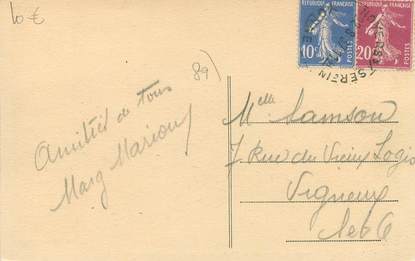 10 €
89
RÉPUBLIQUE FRANÇAISE
10c
RÉPUBLIQUE FRANÇAISE
20c
Amitiés de tous
Marg Marion
Melle Samson
7 Rue du Vieux Logis
Vigneux